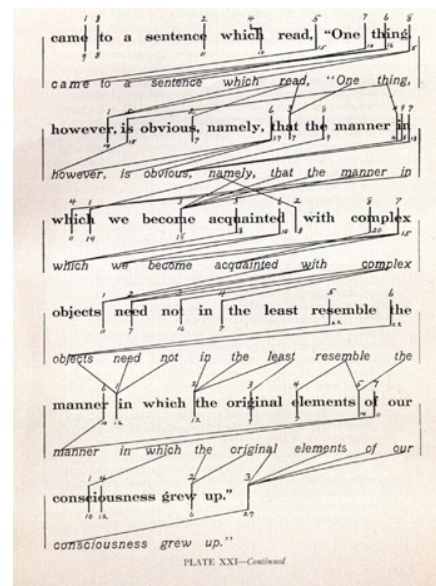 came to a sentence which read, "One thing,
came to a sentence which read, "One thing,
however, is obvious, namely, that the manner in
however, is obvious, namely, that the manner in
which we become acquainted with complex
which we become acquainted with complex
objects need not in the least resemble the
objects need not in the least resemble the
manner in which the original elements of our
manner in which the original elements of our
consciousness grew up."
consciousness grew up."
PLATE XXI—Continued